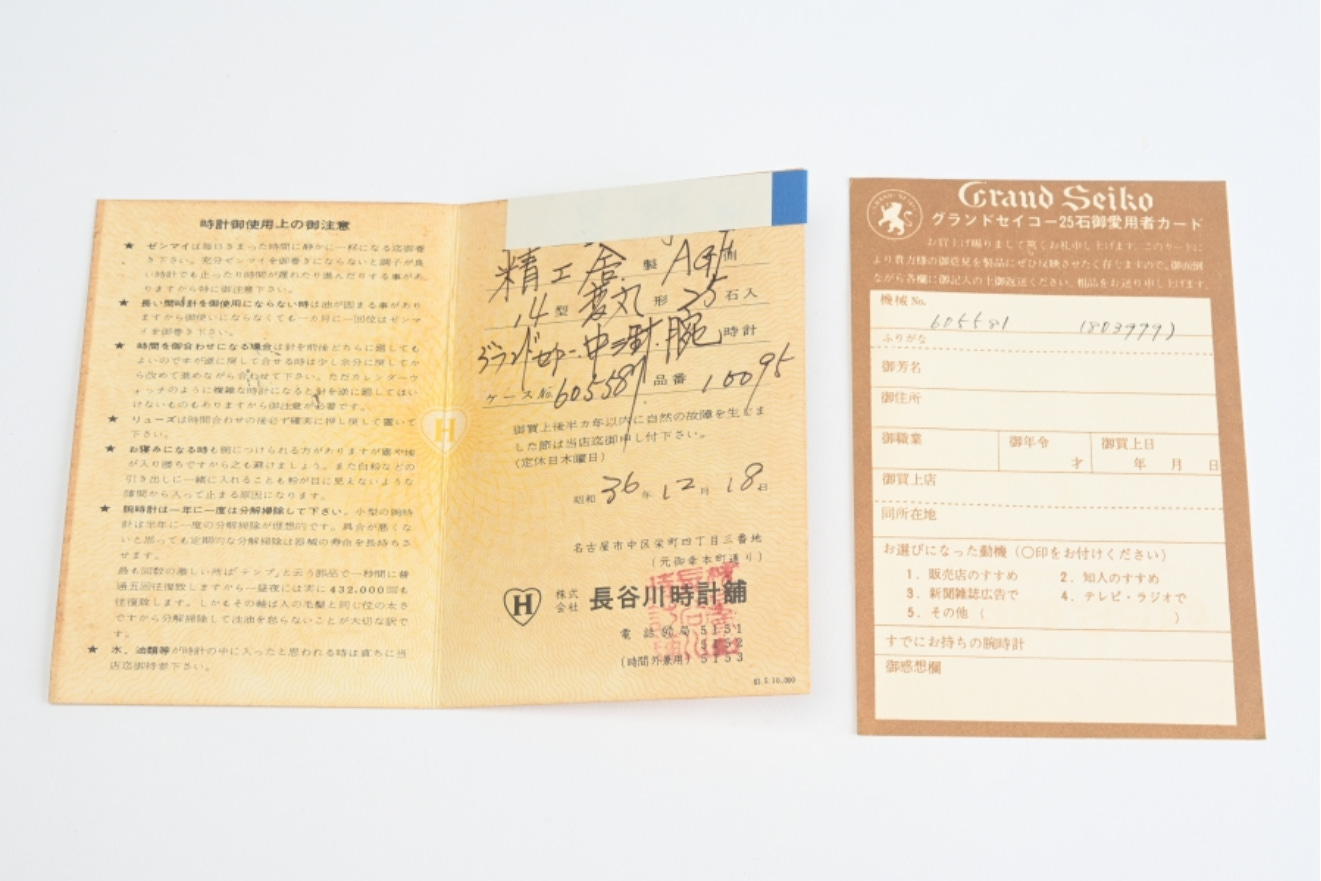 時計御使用上の御注意
★ ゼンマイは毎日きまった時間に静かに一杯になる迄御巻
き下さい。充分ゼンマイを御巻きにならないと調子が良
い時計でも止ったり時間が遅れたり進んだりする事があ
りますから特に御注意下さい。
★ 長い間時計を御使用にならない時は油が固まる事があり
ますから御使いにならなくても一カ月に一回位はゼンマ
イを御巻き下さい。
★ 時間を御合わせになる場合は針を前後どちらに廻しても
よいのですが逆に戻して合せる時は少し余分に戻してか
ら改めて進めながら合わせて下さい。ただカレンダーウ
ォッチのように複雑な時計になると針を逆に廻してはい
けないものもありますから御注意が必要です。
★ リューズは時間合わせの後必ず確実に押し戻して置いて
下さい。
★ お寝みになる時も腕につけられる方がありますが塵や埃
が入り勝ちですから之も避けましょう。また白粉などの
引き出しに一緒に入れることも粉が目に見えないような
隙間から入って止まる原因になります。
★ 腕時計は一年に一度は分解掃除して下さい。小型の腕時
計は半年に一度の分解掃除が理想的です。具合が悪くな
いと思っても定期的な分解掃除は器械の寿命を長持ちさ
せます。
最も回数の激しい所は「テンプ」と云う部品で一秒間に普
通五回往復致しますから一昼夜には実に432,000回も
往復致します。しかもその軸は人の毛髪と同じ位の太さ
ですから分解掃除して注油を怠らないことが大切な訳で
す。
★ 水、油類等が時計の中に入ったと思われる時は直ちに当
店迄御持参下さい。
H
精工舎 製 AGF 側
14 型 変丸 形 25 石入
グランドセイコー 中三針 腕 時計
ケースNo. 605581 品番 10095
御買上後半カ年以内に自然の故障を生じま
した節は当店迄御申し付下さい。
(定休日木曜日)
昭和 36 年 12 月 18 日
名古屋市中区栄町四丁目三番地
(元御幸本町通り)
H 株式会社 長谷川時計舗
電話 局 5151
5152
(時間外兼用) 5153
61.5.10,000
GRAND SEIKO
Grand Seiko
グランドセイコー25石御愛用者カード
お買上げ賜りまして厚くお礼申し上げます。このカードに
より貴方様の御意見を製品にぜひ反映させたく存じますので、御面倒
ながら各欄に御記入の上御返送ください。粗品をお送り申し上げます。
機械No.
605581 (803999)
ふりがな
御芳名
御住所
御職業 御年令 才 御買上日 年 月 日
御買上店
同所在地
お選びになった動機(〇印をお付けください)
1. 販売店のすすめ 2. 知人のすすめ
3. 新聞雑誌広告で 4. テレビ・ラジオで
5. その他 ( )
すでにお持ちの腕時計
御感想欄